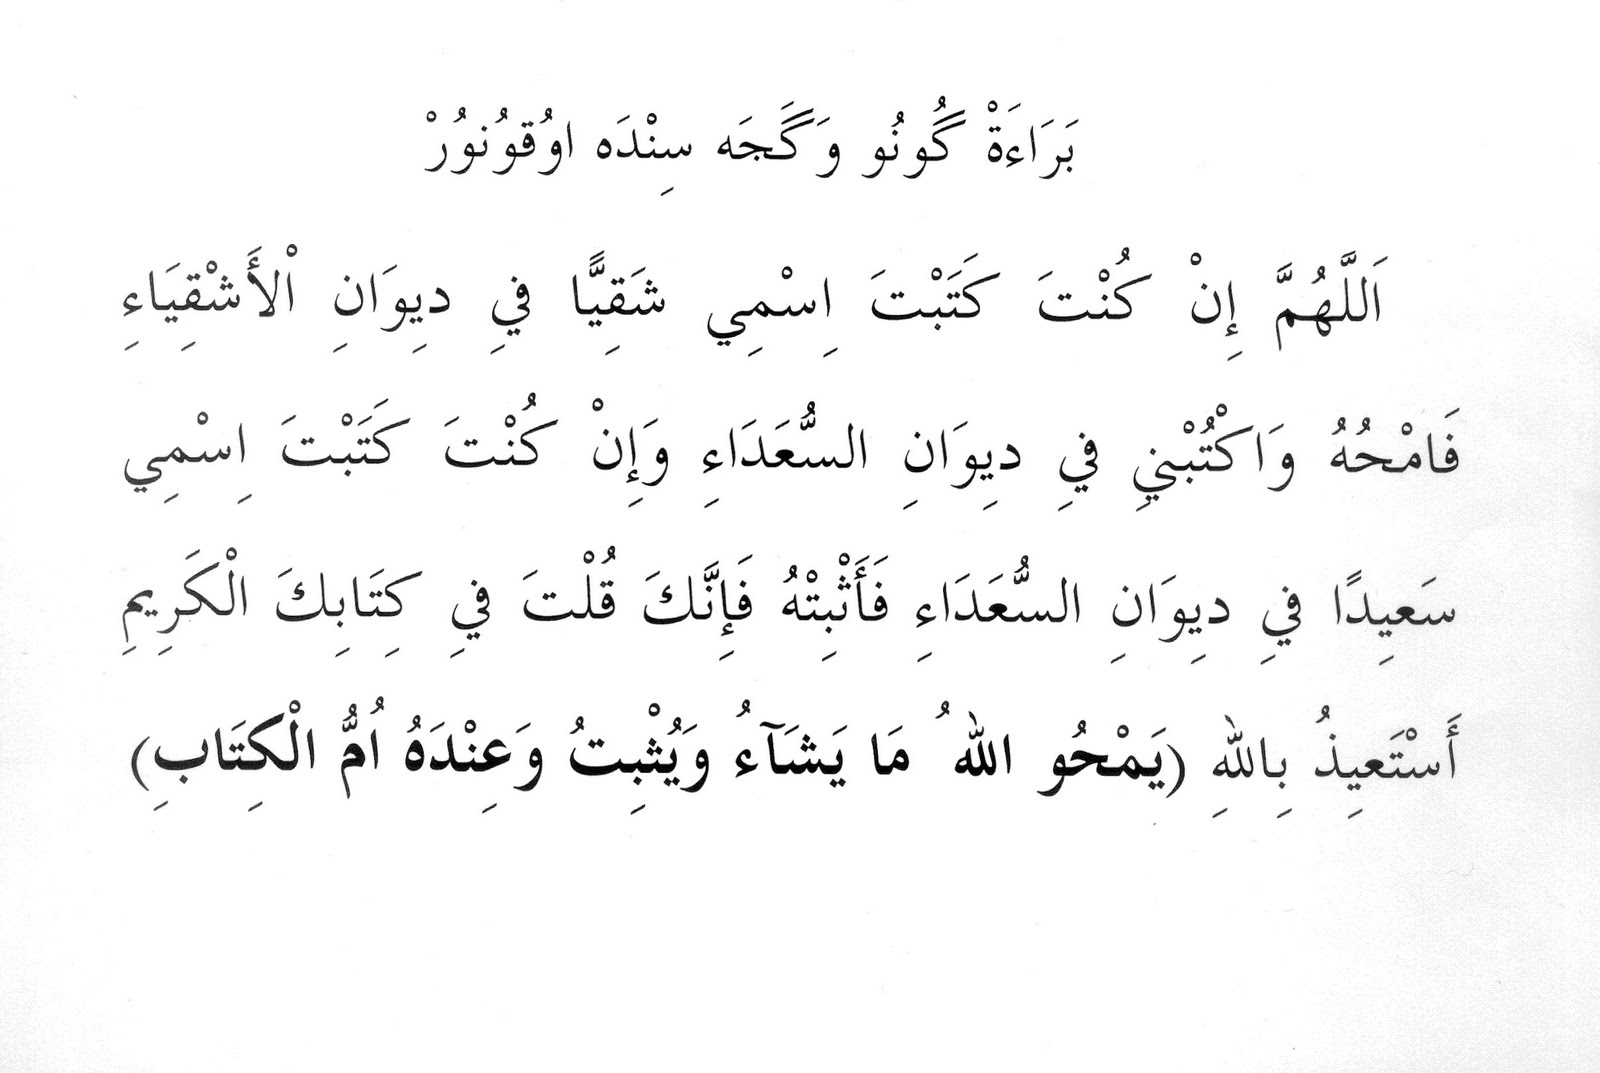 بَرَاءَةْ گُونُو وَگَجَه سِنْدَه اوُقوُنوُرْ
اَللَّهُمَّ إِنْ كُنْتَ كَتَبْتَ اِسْمِي شَقِيًّا فِي دِيوَانِ اْلأَشْقِيَاءِ
فَامْحُهُ وَاكْتُبْنِي فِي دِيوَانِ السُّعَدَاءِ وَإِنْ كُنْتَ كَتَبْتَ اِسْمِي
سَعِيدًا فِي دِيوَانِ السُّعَدَاءِ فَأَثْبِتْهُ فَإِنَّكَ قُلْتَ فِي كِتَابِكَ الْكَرِيمِ
أَسْتَعِيذُ بِاللهِ (يَمْحُو اللهُ مَا يَشَآءُ وَيُثْبِتُ وَعِنْدَهُ اُمُّ الْكِتَابِ)